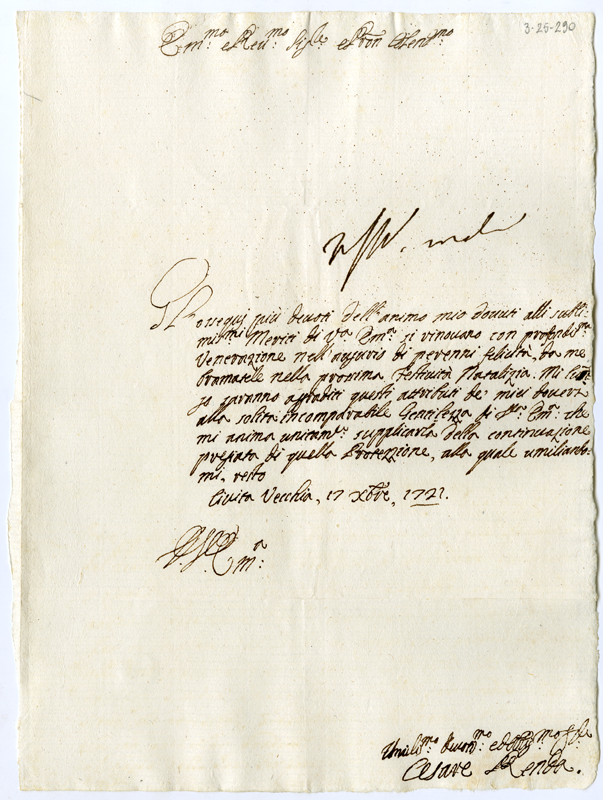 3-25-290
Em:mo e Rev:mo Sig:re e Pron Colen:mo
Gl'ossequj più devoti dell'animo mio dovuti alli subli-
missi Meriti di V:ra Em:a si rinovano con profondis:ma
Venerazione nell'augurio di perenni felicità, da me
bramatele nella prossima Festività Natalizia. Mi
saranno aggraditi questi attributi de' miei doveri
alla solita incomparabile Gentilezza di V:ra Em:a che
mi anima unitam:te supplicarla della continuazione
pregiata di quella Protezione, alla quale umiliando-
mi, resto
Civita Vecchia, 17 Xbre, 1721.
Em:a
Umilis:mo Devot:mo ed Obblig:mo
Cesare Renda.